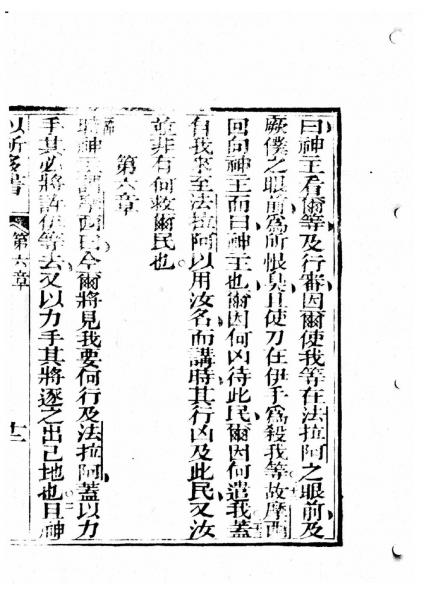 曰神主看爾等及行審因爾使我等在法拉阿之眼前及
厥僕之眼前為所恨臭且使刀在伊手為殺我等故摩西
回向神主而曰神主也爾因何凶待此民爾因何遣我蓋
自我來至法拉阿以用汝名而講時其行凶及此民又汝
並非有何救爾民也
第六章
神主謂摩西曰今爾將見我要何行及法拉阿蓋以力
手其必將許伊等去又以力手其將逐之出己地也且神
以所多書 第六章 十二